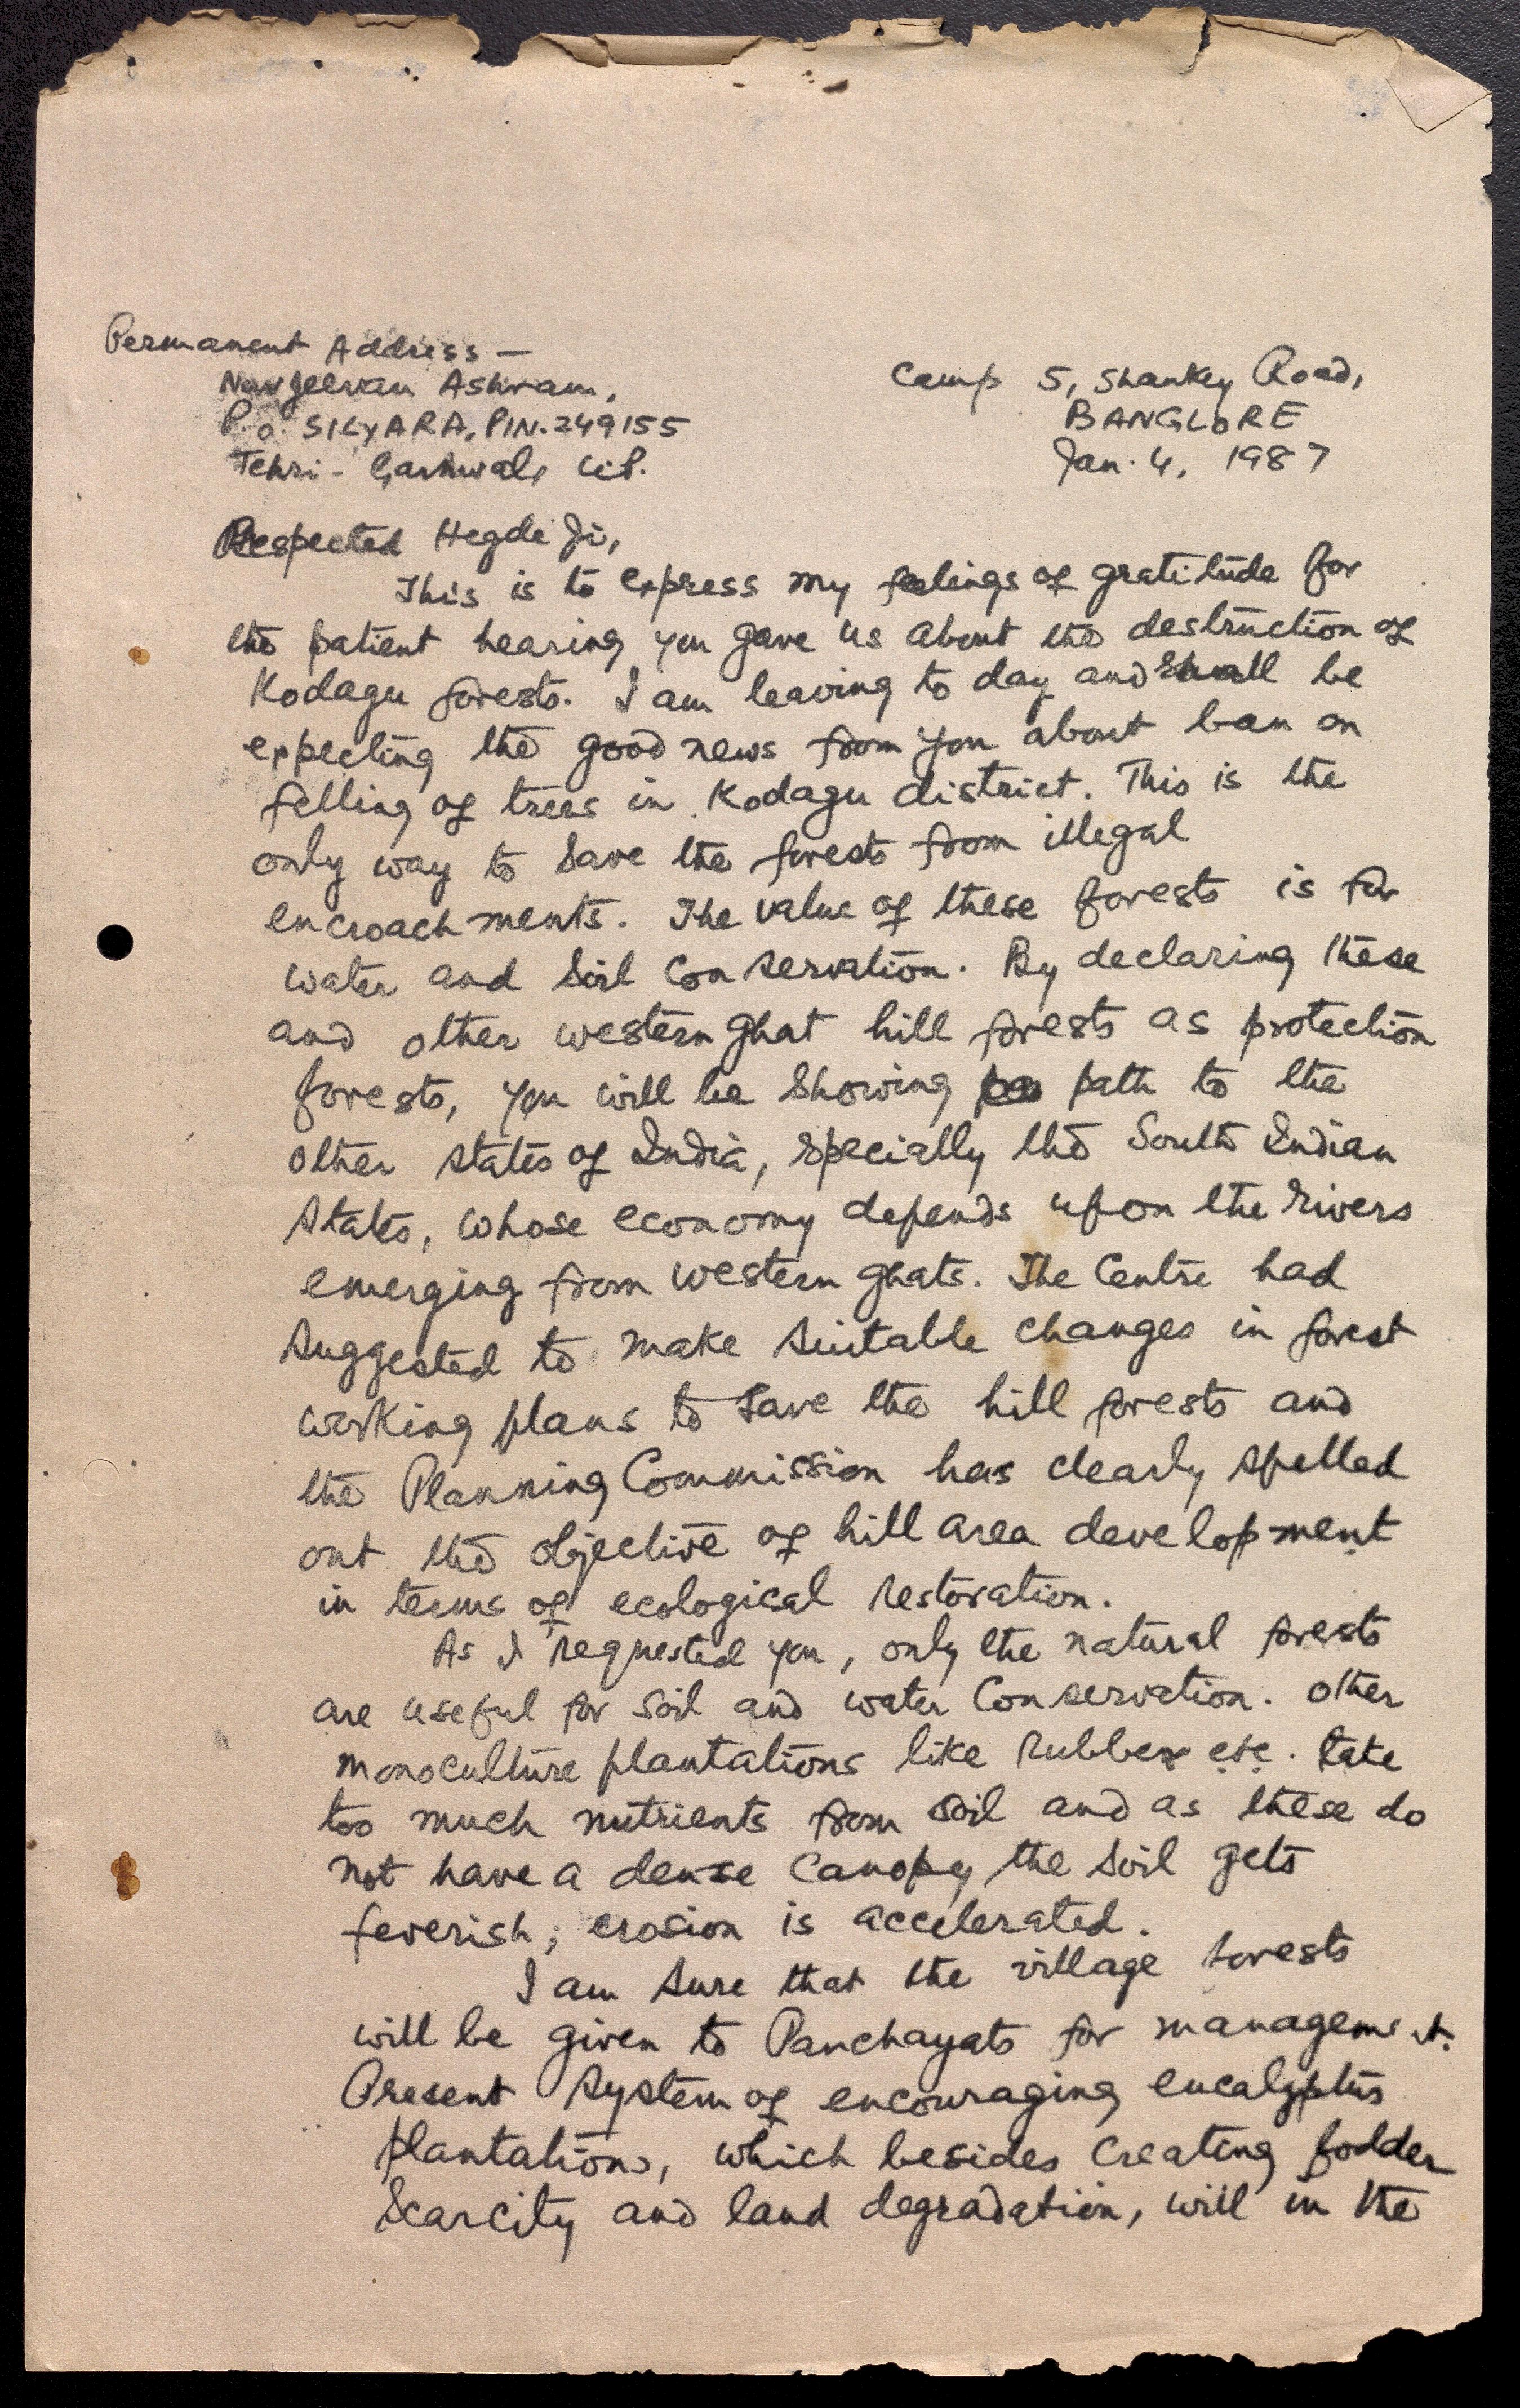 Permanent Address —
Navjeevan Ashram,
P.o. SILYARA, PIN. 249155
Tehri - Garhwal, U.P.
Camp 5, Shankey Road,
BANGLORE
Jan. 4, 1987
Respected Hegde Ji,
This is to express my feelings of gratitude for
the patient hearing you gave us about the destruction of
Kodagu forests. I am leaving to day and shall be
expecting the good news from you about ban on
felling of trees in Kodagu district. This is the
only way to save the forests from illegal
encroachments. The value of these forests is for
water and soil conservation. By declaring these
and other western ghat hill forests as protection
forests, you will be showing path to the
other states of India, specially the South Indian
states, whose economy depends upon the rivers
emerging from western ghats. The Centre had
suggested to make suitable changes in forest
working plans to save the hill forests and
the Planning Commission has clearly spelled
out the objective of hill area development
in terms of ecological restoration.
As I requested you, only the natural forests
are useful for soil and water conservation. Other
monoculture plantations like rubber etc. take
too much nutrients from soil and as these do
not have a dense canopy the soil gets
feverish; erosion is accelerated.
I am sure that the village forests
will be given to Panchayats for management.
Present system of encouraging eucalyptus
plantations, which besides creating fodder
scarcity and land degradation, will in the